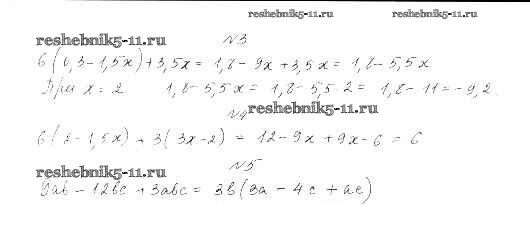 reshebnik5-11.ru reshebnik5-11.ru
reshebnik5-11.ru №3
6(0,3-1,5x)+3,5x = 1,8-9x+3,5x = 1,8-5,5x
При x=2 1,8-5,5x = 1,8-5,5·2 = 1,8-11 = -9,2.
№4 reshebnik5-11.ru
6(2-1,5x)+3(3x-2) = 12-9x+9x-6 = 6
reshebnik5-11.ru №5
9ab-12bc+3abc = 3b(3a-4c+ac)